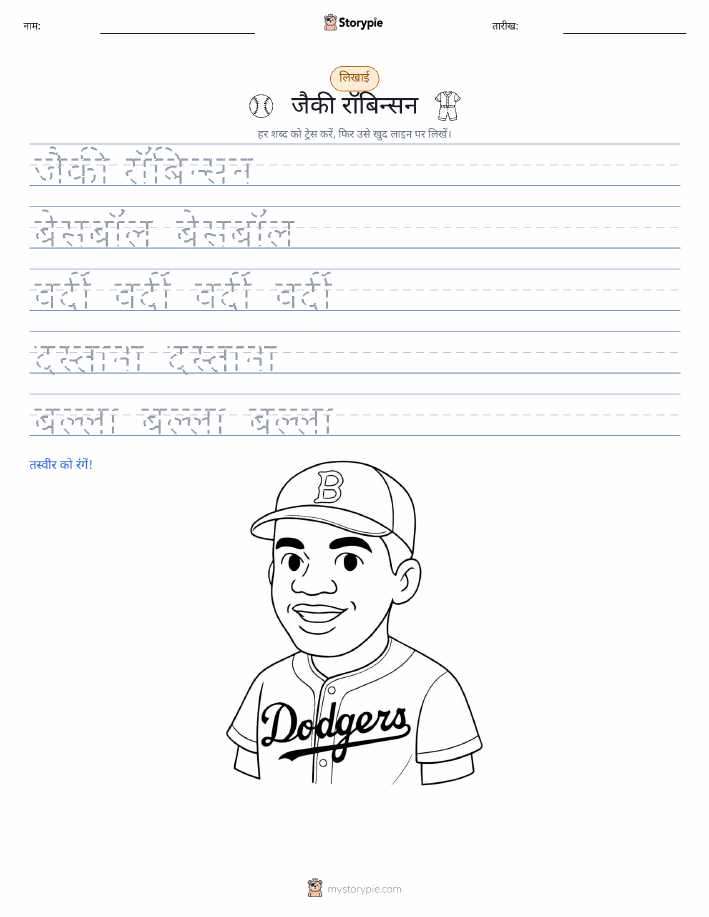 नाम:
Storypie
तारीख:
लिखाई
जैकी रॉबिन्सन
हर शब्द को ट्रेस करें, फिर उसे खुद लाइन पर लिखें।
जैकी रॉबिन्सन
बेसबॉल बेसबॉल
वर्दी वर्दी वर्दी वर्दी
दस्ताना दस्ताना
बल्ला बल्ला बल्ला
तस्वीर को रंगें!
B
Dodgers
mystorypie.com